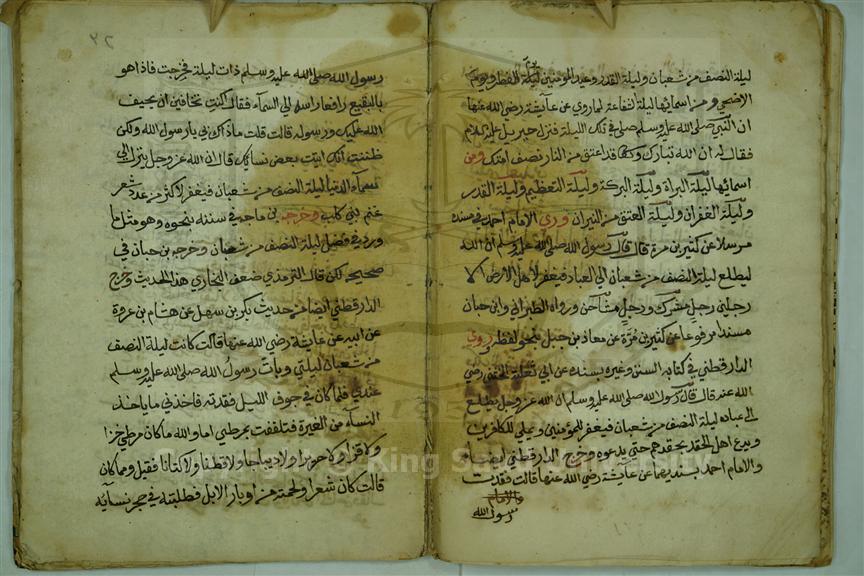 ليلة النصف من شعبان وليلة القدر وعيد المؤمنين ليلة الفطر ويوم
الاضحى ومن اسمائها ليلة الشفاعة لما روي عن عايشة رضي الله عنها
ان النبي صلى الله عليه وسلم صلى في تلك الليلة فنزل جبريل عليه السلام
فقال له ان الله تبارك وتعالى قد اعتق من النار نصف امتك ومن
اسمائها ليلة البراة وليلة البركة وليلة التعظيم وليلة القدر
وليلة الغفران وليلة العتق من النيران وروى الامام احمد في مسنده
مرسلا عن كثير بن مرة قال قال رسول الله صلى الله عليه وسلم ان الله
ليطلع ليلة النصف من شعبان الى العباد فيغفر لاهل الارض الا
رجلين رجل مشرك ورجل مشاحن ورواه الطبراني وابن حبان
مسندا مرفوعا عن كثير بن مرة عن معاذ بن جبل بنحو لفظه وروى
الدارقطني في كتابه السنن وغيره بسنده عن ابي ثعلبة الخشني رضي
الله عنه قال قال رسول الله صلى الله عليه وسلم ان الله عز وجل يطلع
الى عباده ليلة النصف من شعبان فيغفر للمؤمنين ويملي للكافرين
ويدع اهل الحقد بحقدهم حتى يدعوه وخرج الدارقطني ايضا
والامام احمد بسنديهما عن عايشة رضي الله عنها قالت فقدت
رسول الله
٣٢
رسول الله صلى الله عليه وسلم ذات ليلة فخرجت فاذا هو
بالبقيع رافعا راسه الى السماء فقال اكنت تخافين ان يحيف
الله عليك ورسوله قالت قلت ما ذاك بي يا رسول الله ولكن
ظننت انك اتيت بعض نسايك قال ان الله عز وجل ينزل الى
سماء الدنيا ليلة النصف من شعبان فيغفر لاكثر من عدد شعر
غنم بني كلب وخرجه بن ماجه في سننه بنحوه وهو مثل ما
ورد في فضل ليلة النصف من شعبان وخرجه بن حبان في
صحيحه لكن قال الترمذي ضعف البخاري هذا الحديث وخرج
الدارقطني ايضا من حديث بكر بن سهل عن هشام بن عروة
عن ابيه عن عايشة رضي الله عنها قالت كانت ليلة النصف
من شعبان ليلتي وبات رسول الله صلى الله عليه وسلم
عندي فلما كان في جوف الليل فقدته فاخذني ما ياخذ
النسآء من الغيرة فتلففت بمرطي اما والله ما كان مرطي خزا
ولا قزا ولا حريرا ولا ديباجا ولا قطنا ولا كتانا فقيل ومما كان
قالت كان شعرا ولحمته من اوبار الابل فطلبته في حجر نسآيه